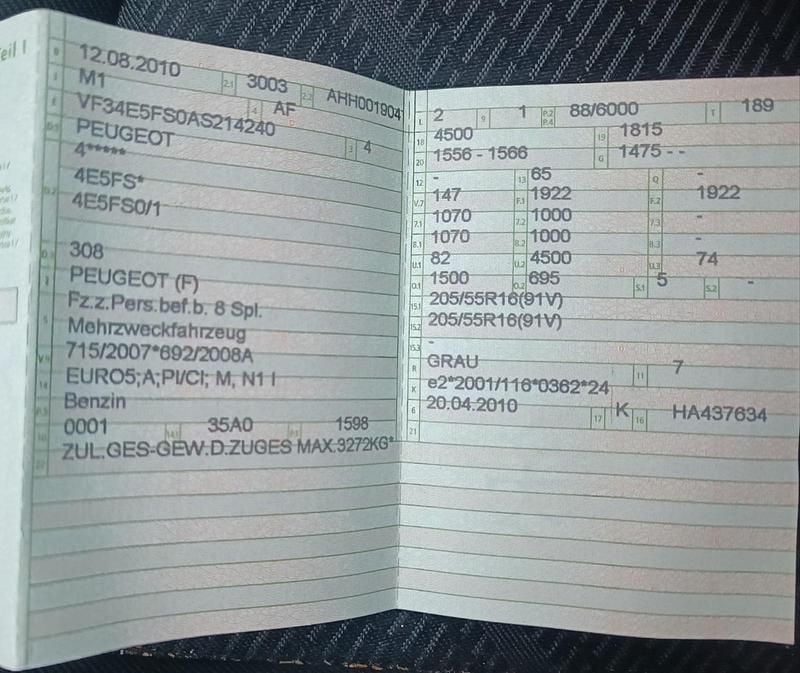 eil I
B 12.08.2010 2.1 3003 2.2 AHH001904
J M1 4 AF
E VF34E5FS0AS214240 3 4
D.1 PEUGEOT
4*****
D.2 4E5FS*
4E5FS0/1
D.3 308
2 PEUGEOT (F)
5 Fz.z.Pers.bef.b. 8 Spl.
Mehrzweckfahrzeug
V.9 715/2007*692/2008A
14 EURO5;A;PI/CI; M, N1 I
P.3 Benzin
10 0001 14.1 35A0 P.1 1598
22 ZUL.GES-GEW.D.ZUGES MAX.3272KG*
L 2 9 1 P.2 P.4 88/6000 T 189
18 4500 19 1815
20 1556 - 1566 G 1475 - -
12 - 13 65 Q -
V.7 147 F.1 1922 F.2 1922
7.1 1070 7.2 1000 7.3 -
8.1 1070 8.2 1000 8.3 -
U.1 82 U.2 4500 U.3 74
O.1 1500 O.2 695 S.1 5 S.2 -
15.1 205/55R16(91V)
15.2 205/55R16(91V)
15.3 -
R GRAU 11 7
K e2*2001/116*0362*24
6 20.04.2010 17 K 16 HA437634
21